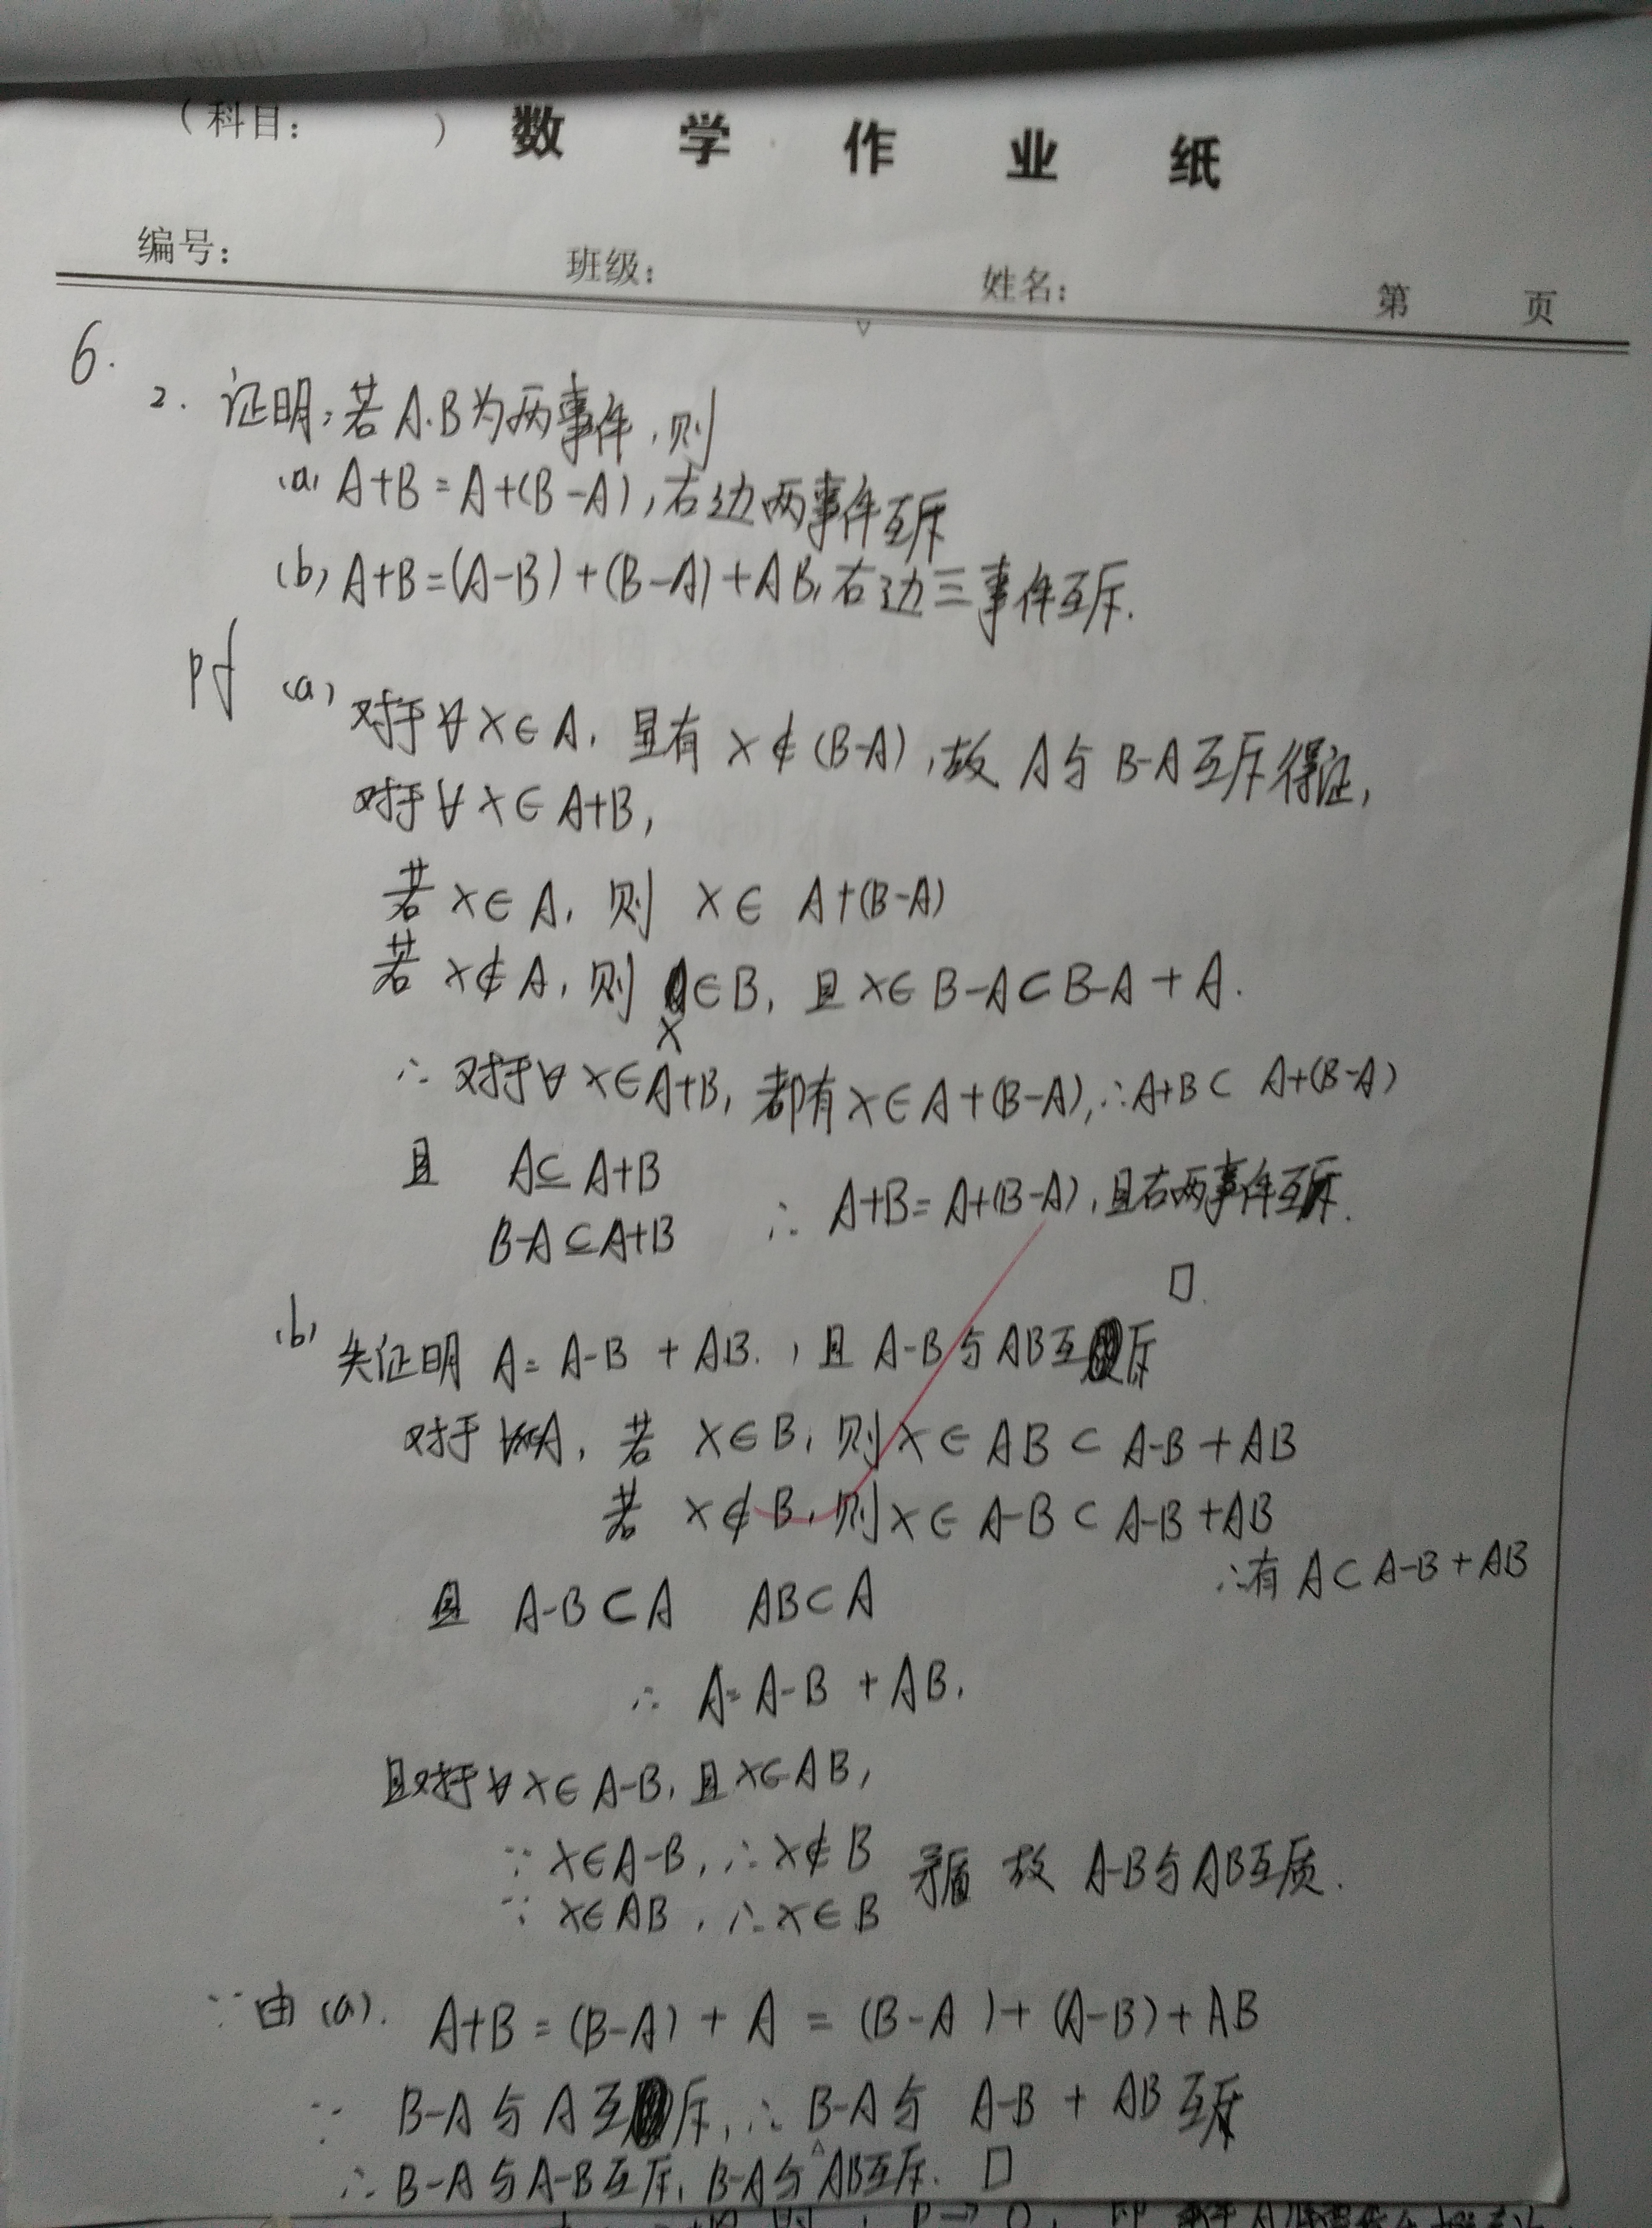 （科目：　　　）数学作业纸
编号：　班级：　姓名：　第　页
6.
2. 证明：若A.B为两事件，则
(a) A+B=A+(B-A)，右边两事件互斥
(b) A+B=(A-B)+(B-A)+AB，右边三事件互斥.
pf (a) 对于∀x∈A，显有 x∉(B-A)，故 A与B-A互斥得证，
对于∀x∈A+B，
若x∈A，则 x∈ A+(B-A)
若x∉A，则 x∈B，且x∈B-A⊂B-A+A.
∴ 对于∀x∈A+B，都有x∈A+(B-A)，∴A+B⊂ A+(B-A)
且 A⊆A+B
B-A⊆A+B ∴ A+B=A+(B-A)，且右两事件互斥.
□.
(b) 先证明 A= A-B + AB.，且 A-B与AB互斥
对于∀x∈A，若 x∈B，则x∈AB⊂A-B+AB
若 x∉B，则x∈A-B⊂A-B+AB
∴有 A⊂A-B+AB
且 A-B⊂A AB⊂A
∴ A=A-B+AB.
且对于∀x∈A-B，且x∈AB，
∵ x∈A-B，∴x∉B
矛盾 故 A-B与AB互质.
∵ x∈AB，∴x∈B
∵由(a). A+B=(B-A)+A=(B-A)+(A-B)+AB
∵ B-A与A互斥，∴B-A与 A-B+AB互斥
∴ B-A与A-B互斥，B-A与AB互斥. □